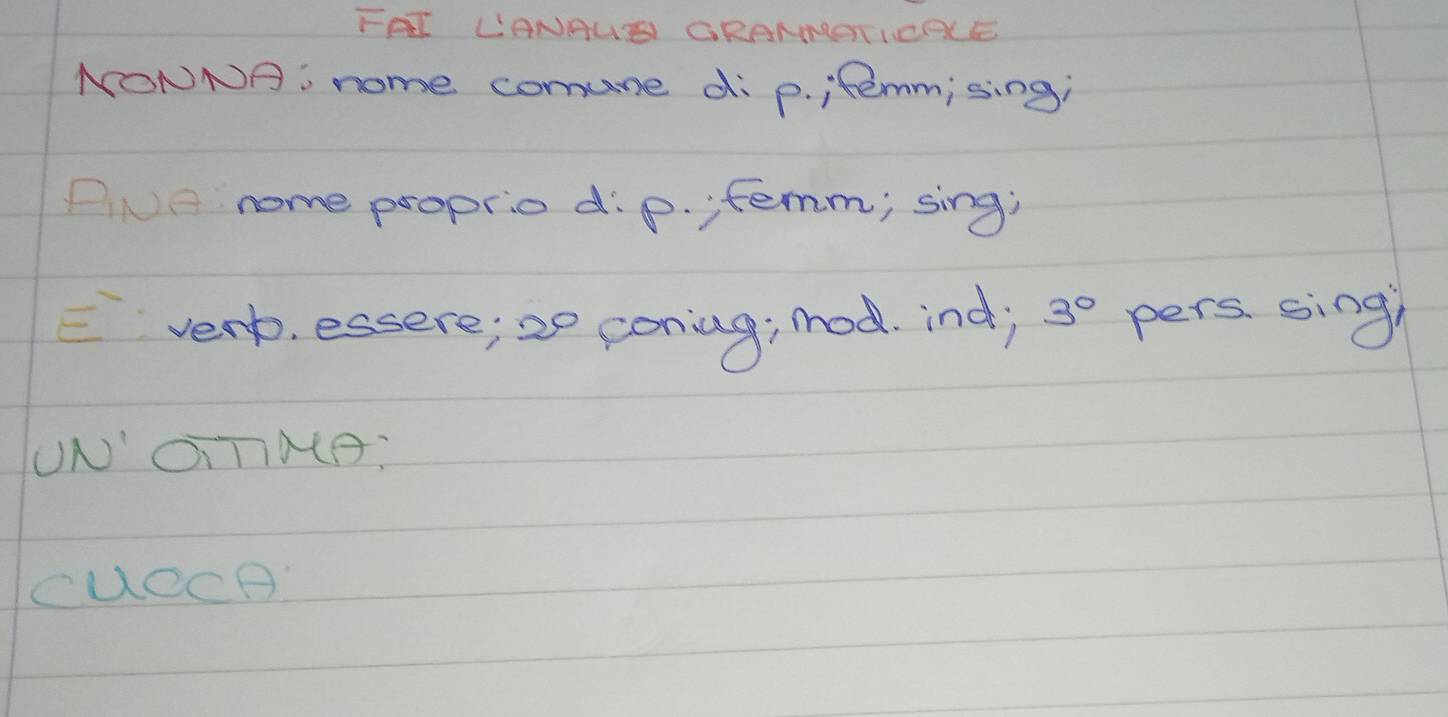 FAI L'ANALISI GRAMMATICALE
NONNA: nome comune di p.; femm; sing;
PINA: nome proprio di p.; femm; sing;
E`: verb. essere; 2° coniug; mod. ind; 3° pers. sing;
UN' OTTIMA:
CUOCA: